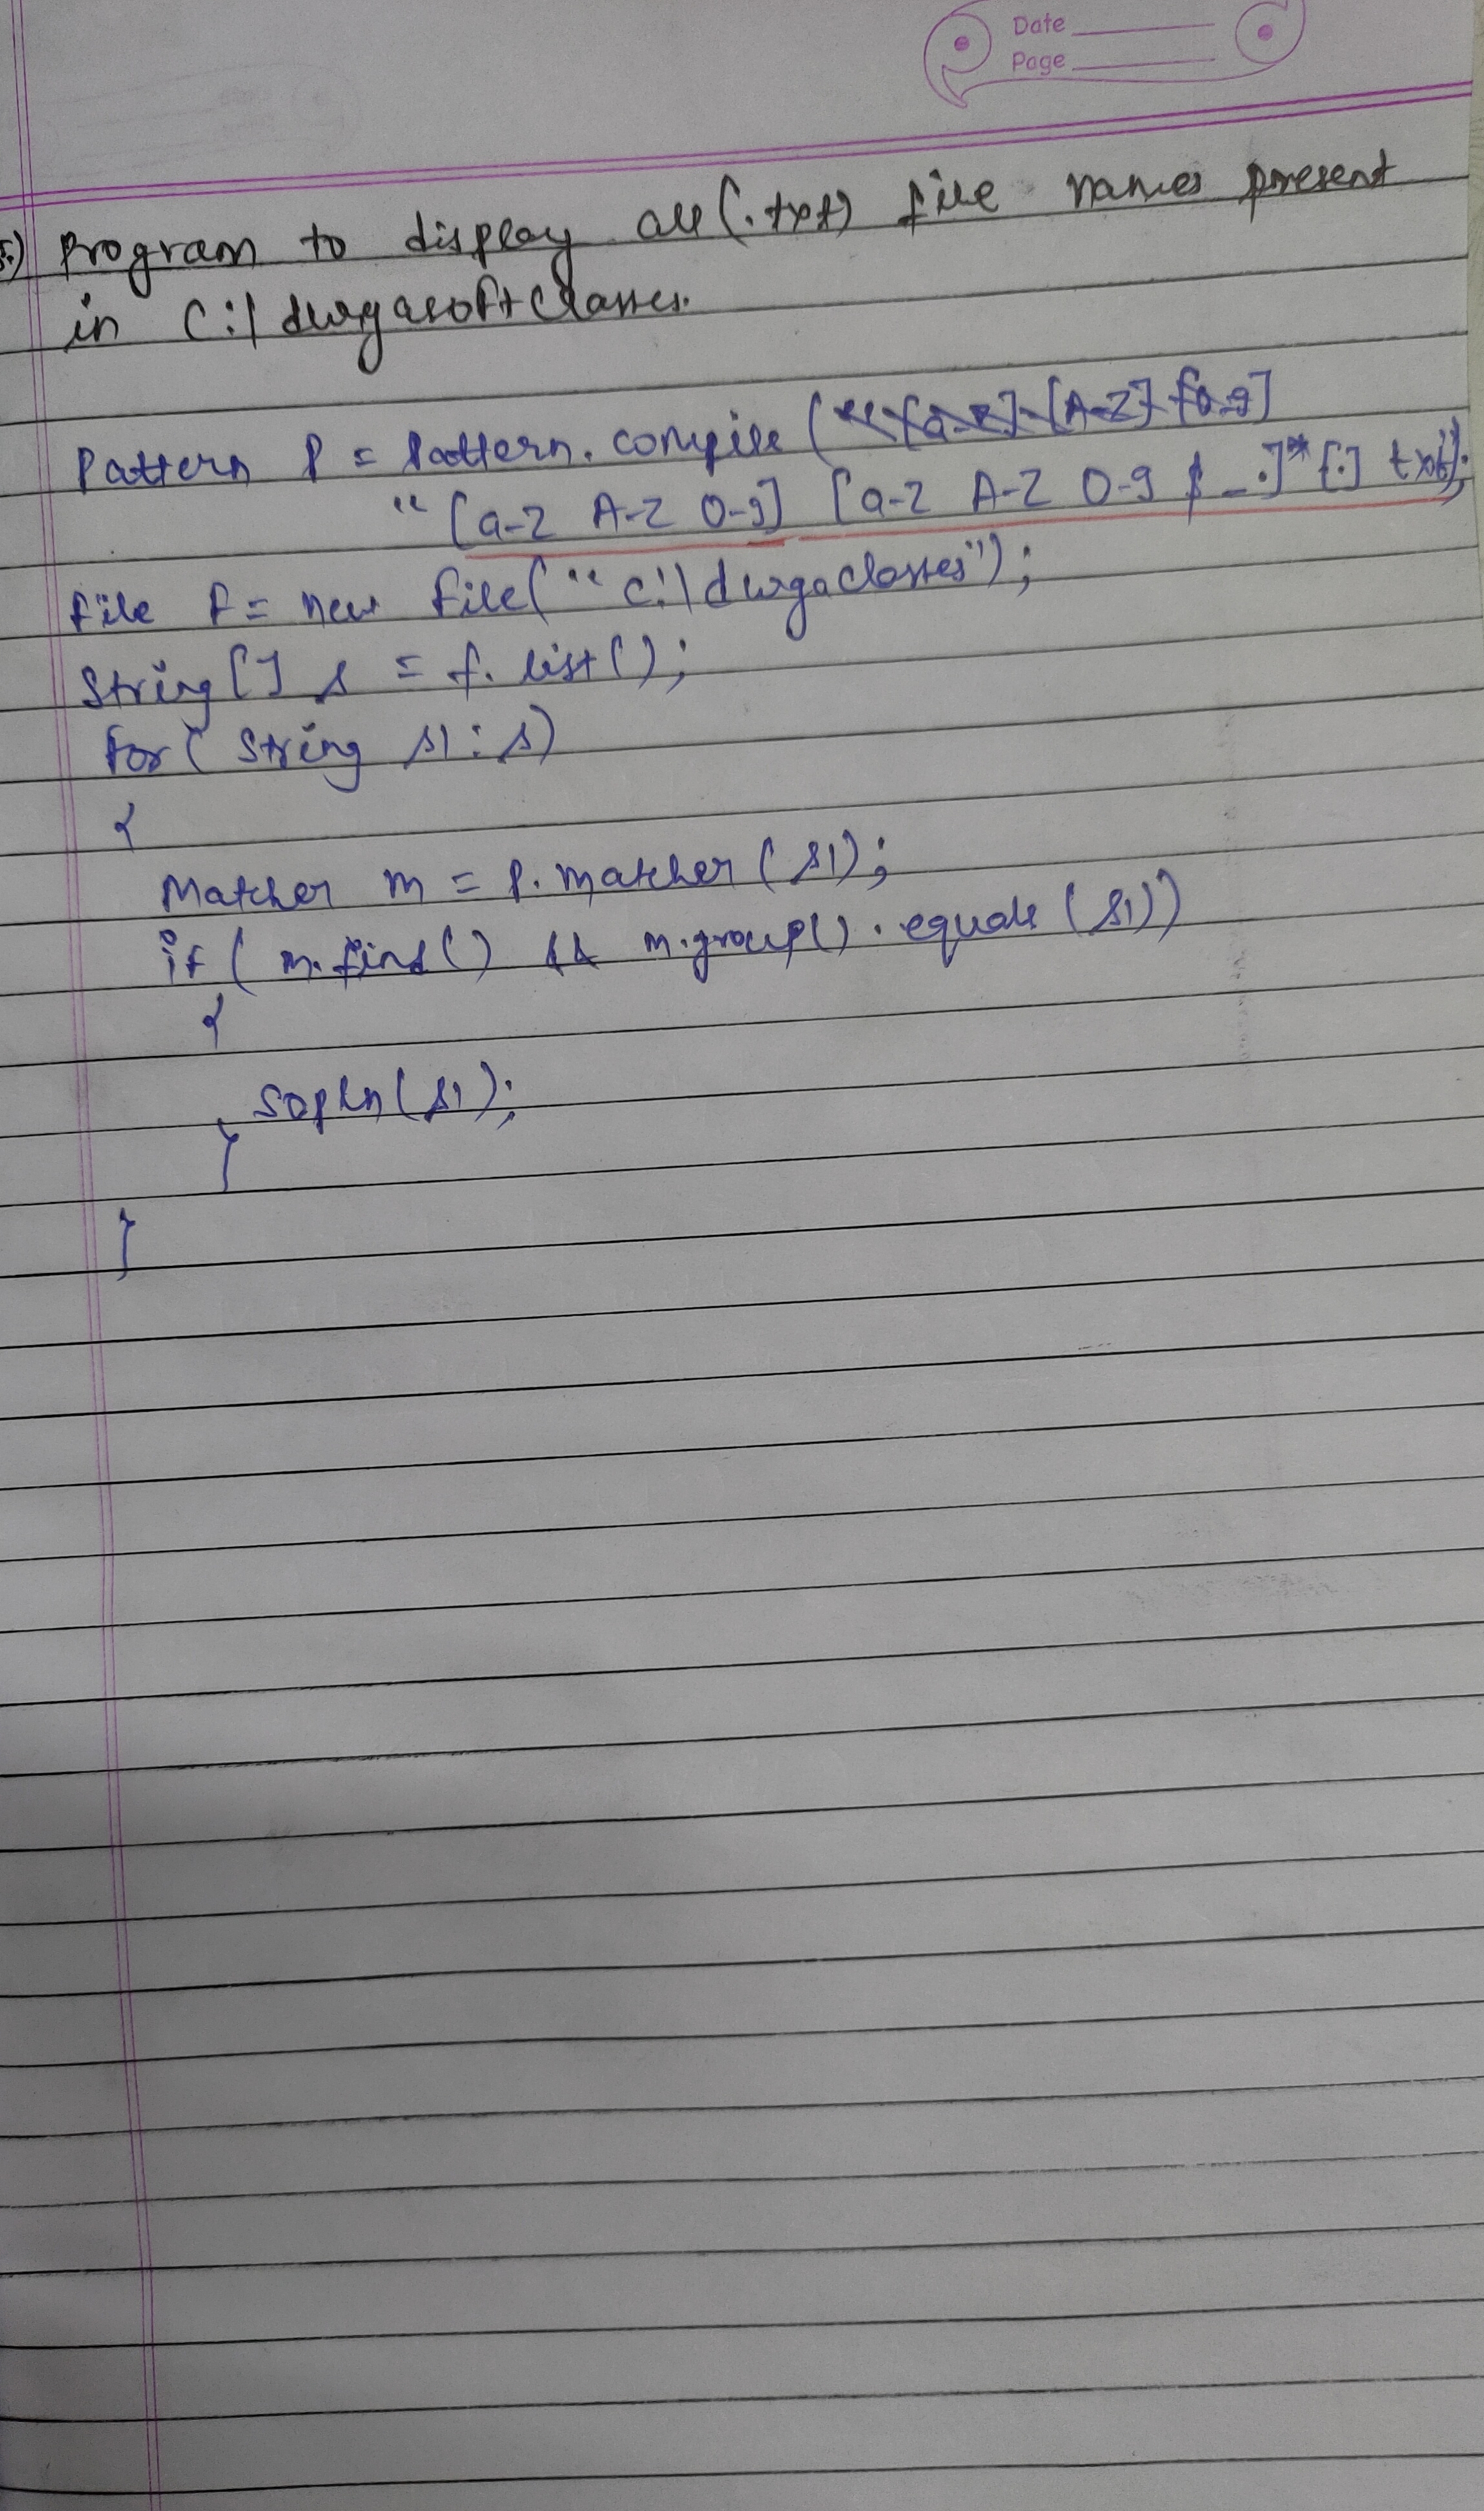 Date
Page
5.) Program to display all (.txt) file names present
in C:\ durgasoftclasses.
Pattern P = Pattern. compile ("
"[a-z A-Z 0-9] [a-z A-Z 0-9 $ _ .]* [.] txt");
File f = new File( "c:\ durgaclasses");
String [] s = f. list();
for ( String s1 : s)
{
Matcher m = p. matcher (s1);
if ( m. find () && m.group() . equals (s1))
{
Sopln (s1);
}
}